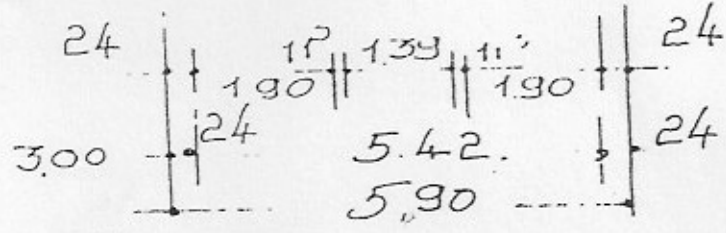 24 11⁵ 1.39 11⁵ 24
1.90 1.90
24 24
3.00 5.42.
5.90